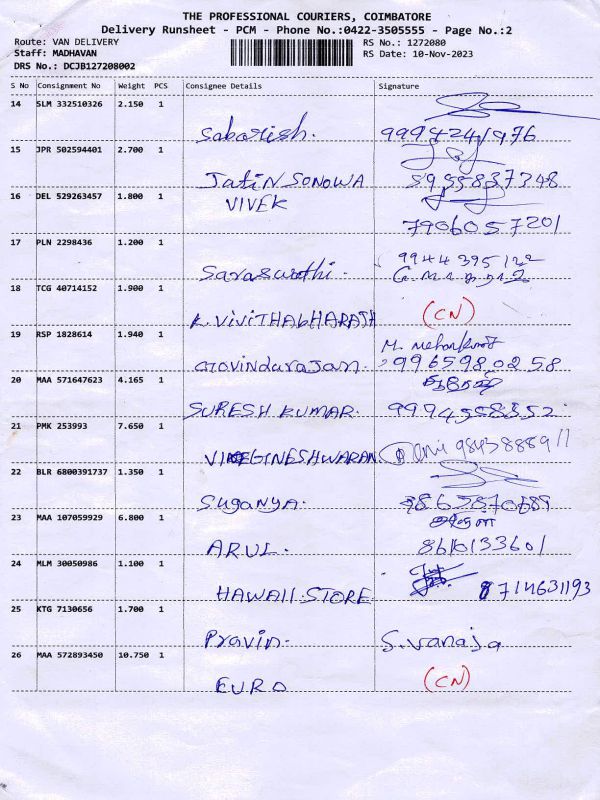 THE PROFESSIONAL COURIERS, COIMBATORE
Delivery Runsheet - PCM - Phone No.:0422-3505555 - Page No.:2
Route: VAN DELIVERY RS No.: 1272080
Staff: MADHAVAN RS Date: 10-Nov-2023
DRS No.: DCJB127208002
S No Consignment No Weight PCS Consignee Details Signature
14 SLM 332510326 2.150 1
Sabarish.
15 JPR 502594401 2.700 1
Jatin SONOWA 5955837348
16 DEL 529263457 1.800 1 VIVEK
7906057201
17 PLN 2298436 1.200 1
9944395122
Saraswathi.
18 TCG 40714152 1.900 1
K. VIVITHABHARATH (CN)
19 RSP 1828614 1.940 1
Govindarajan. 9965980258
20 MAA 571647623 4.165 1
SURESH KUMAR. 9994558352
21 PMK 253993 7.650 1
VIGINESHWARAN
22 BLR 6800391737 1.350 1
Suganya.
23 MAA 107059929 6.800 1
ARUL. 8610133601
24 MLM 30050986 1.100 1
HAWAII.STORE 8714631193
25 KTG 7130656 1.700 1
Pravin. S.vanaja
26 MAA 572893450 10.750 1
EURO (CN)